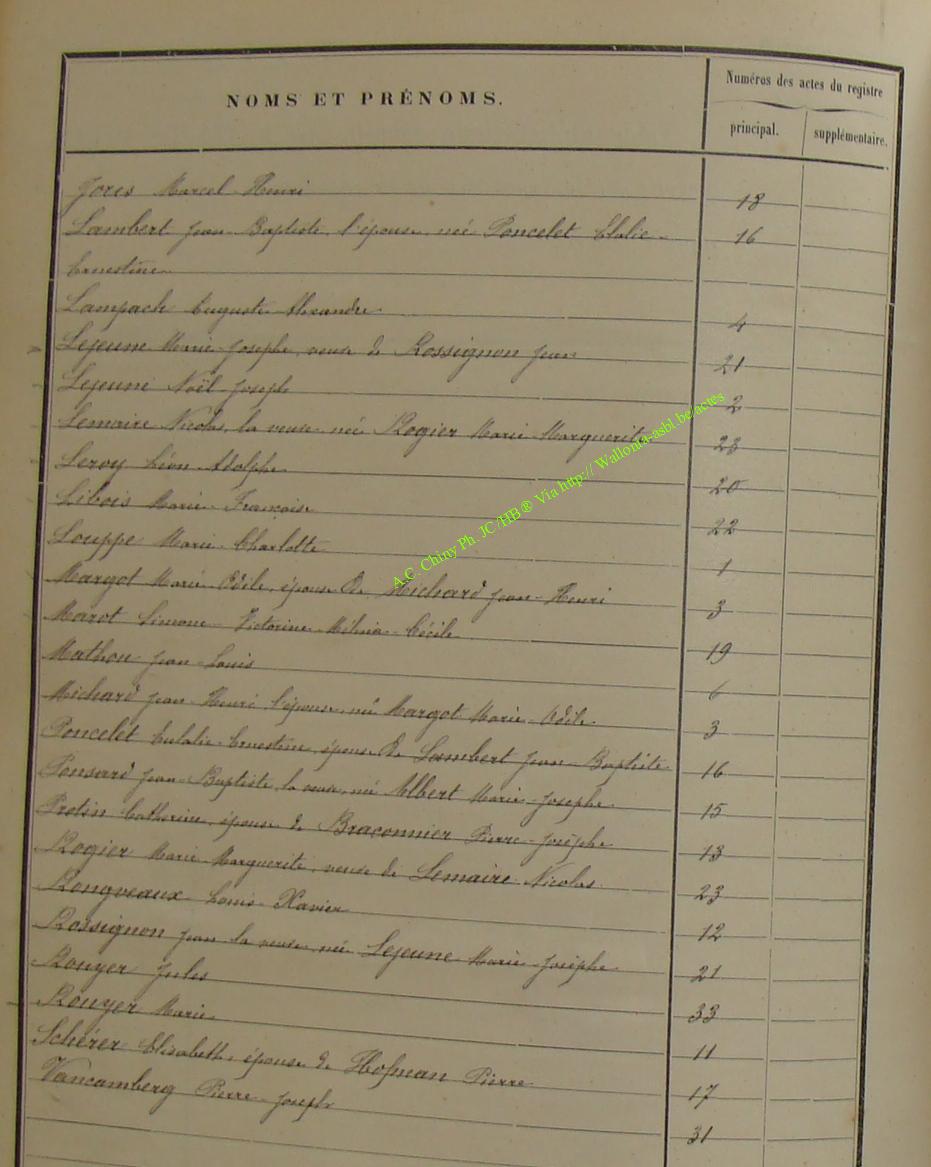 NOMS ET PRÉNOMS.
Numéros des actes du registre
principal.
supplémentaire.
Jores Marcel-Henri 18
Lambert Jean-Baptiste, l'épouse, née Poncelet Elalie- 16
Ernestine
Lampach Auguste-Alexandre 4
Lejeune Marie-Josèphe, veuve de Rossignon Jean 21
Lejeune Noël-Joseph 2
Lemaire Nicolas, la veuve, née Rogier Marie-Marguerite 23
Leroy Léon-Adolphe 20
Libois Marie-Françoise 22
Louppe Marie-Charlotte 1
Margot Marie-Odile, épouse de Michard Jean-Henri 3
Marot Simone-Victorine-Cécile 19
Mathou Jean-Louis 6
Michard Jean-Henri l'épouse, née Margot Marie-Odile 3
Poncelet Eulalie-Ernestine, épouse de Lambert Jean-Baptiste 16
Ponsard Jean-Baptiste, la veuve, née Albert Marie-Josèphe 15
Protin Catherine, épouse de Braconnier Pierre-Josèphe 13
Rogier Marie-Marguerite, veuve de Lemaire Nicolas 23
Rongveaux Louis-Xavier 12
Rossignon Jean la veuve, née Lejeune Marie-Josèphe 21
Rouyer Jules 33
Rouyer Marie 11
Schérer Elisabeth, épouse de Hofman Pierre 17
Vancamberg Pierre-Joseph 31
A.C. Chiny Ph. JC/HB® Via http:// Wallonia-asbl.be/actes